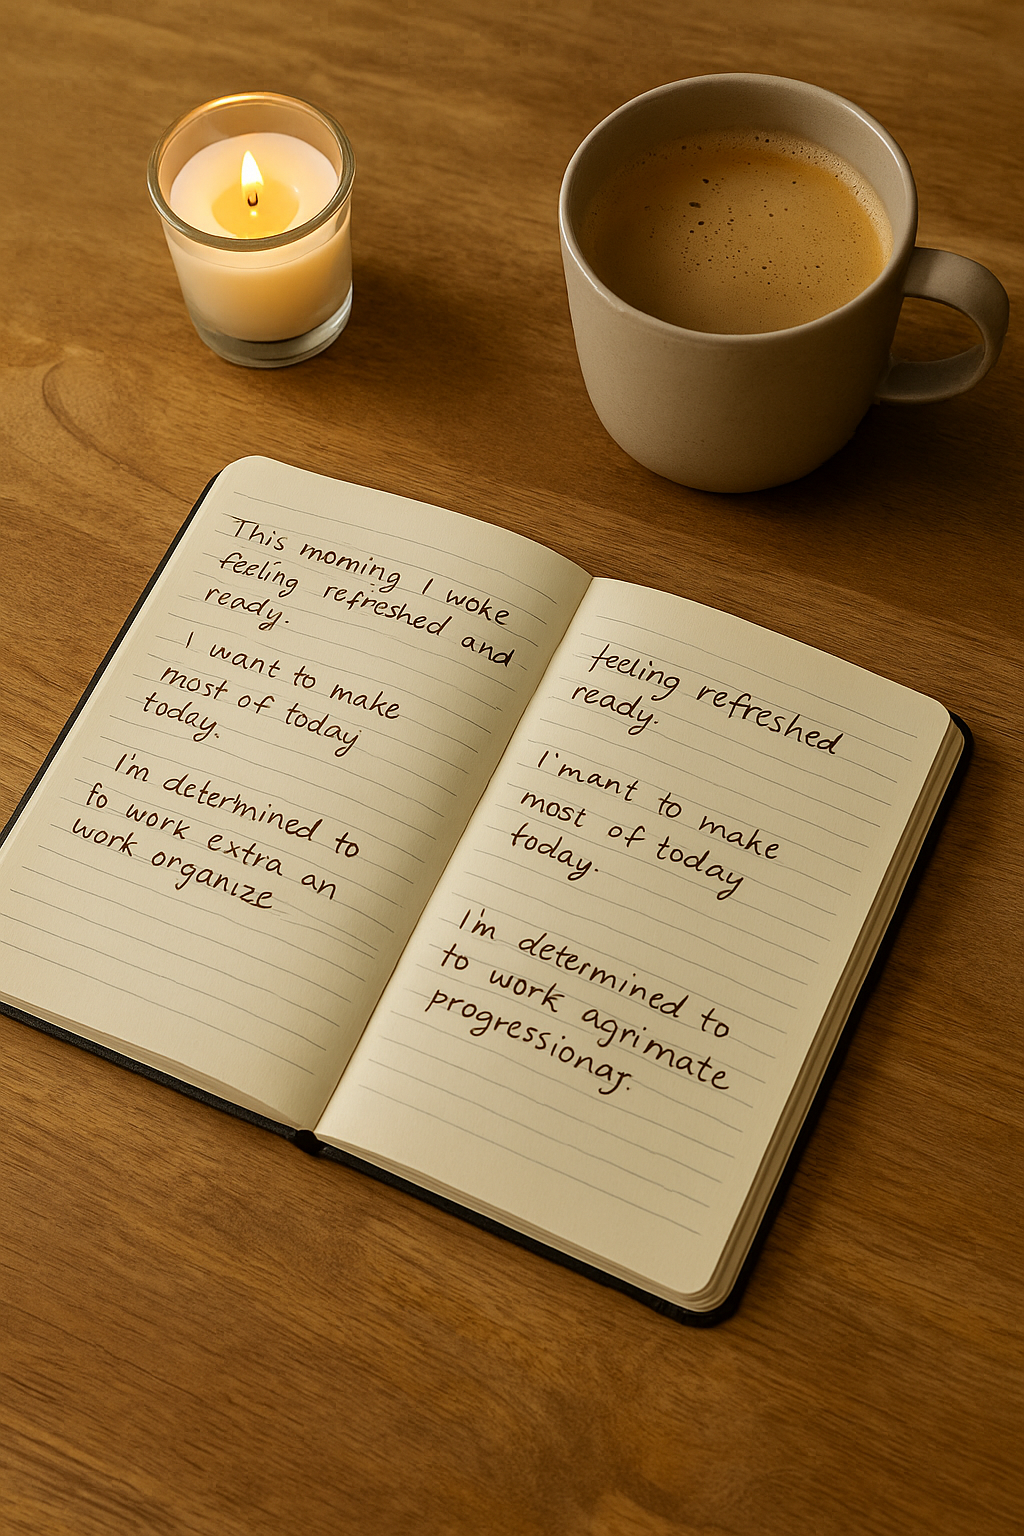 This morning I woke
feeling refreshed and
ready.
I want to make
most of today
today.
I'm determined to
fo work extra an
work organize
feeling refreshed
ready.
I'mant to make
most of today
today.
I'm determined to
to work agrimate
progressionay.